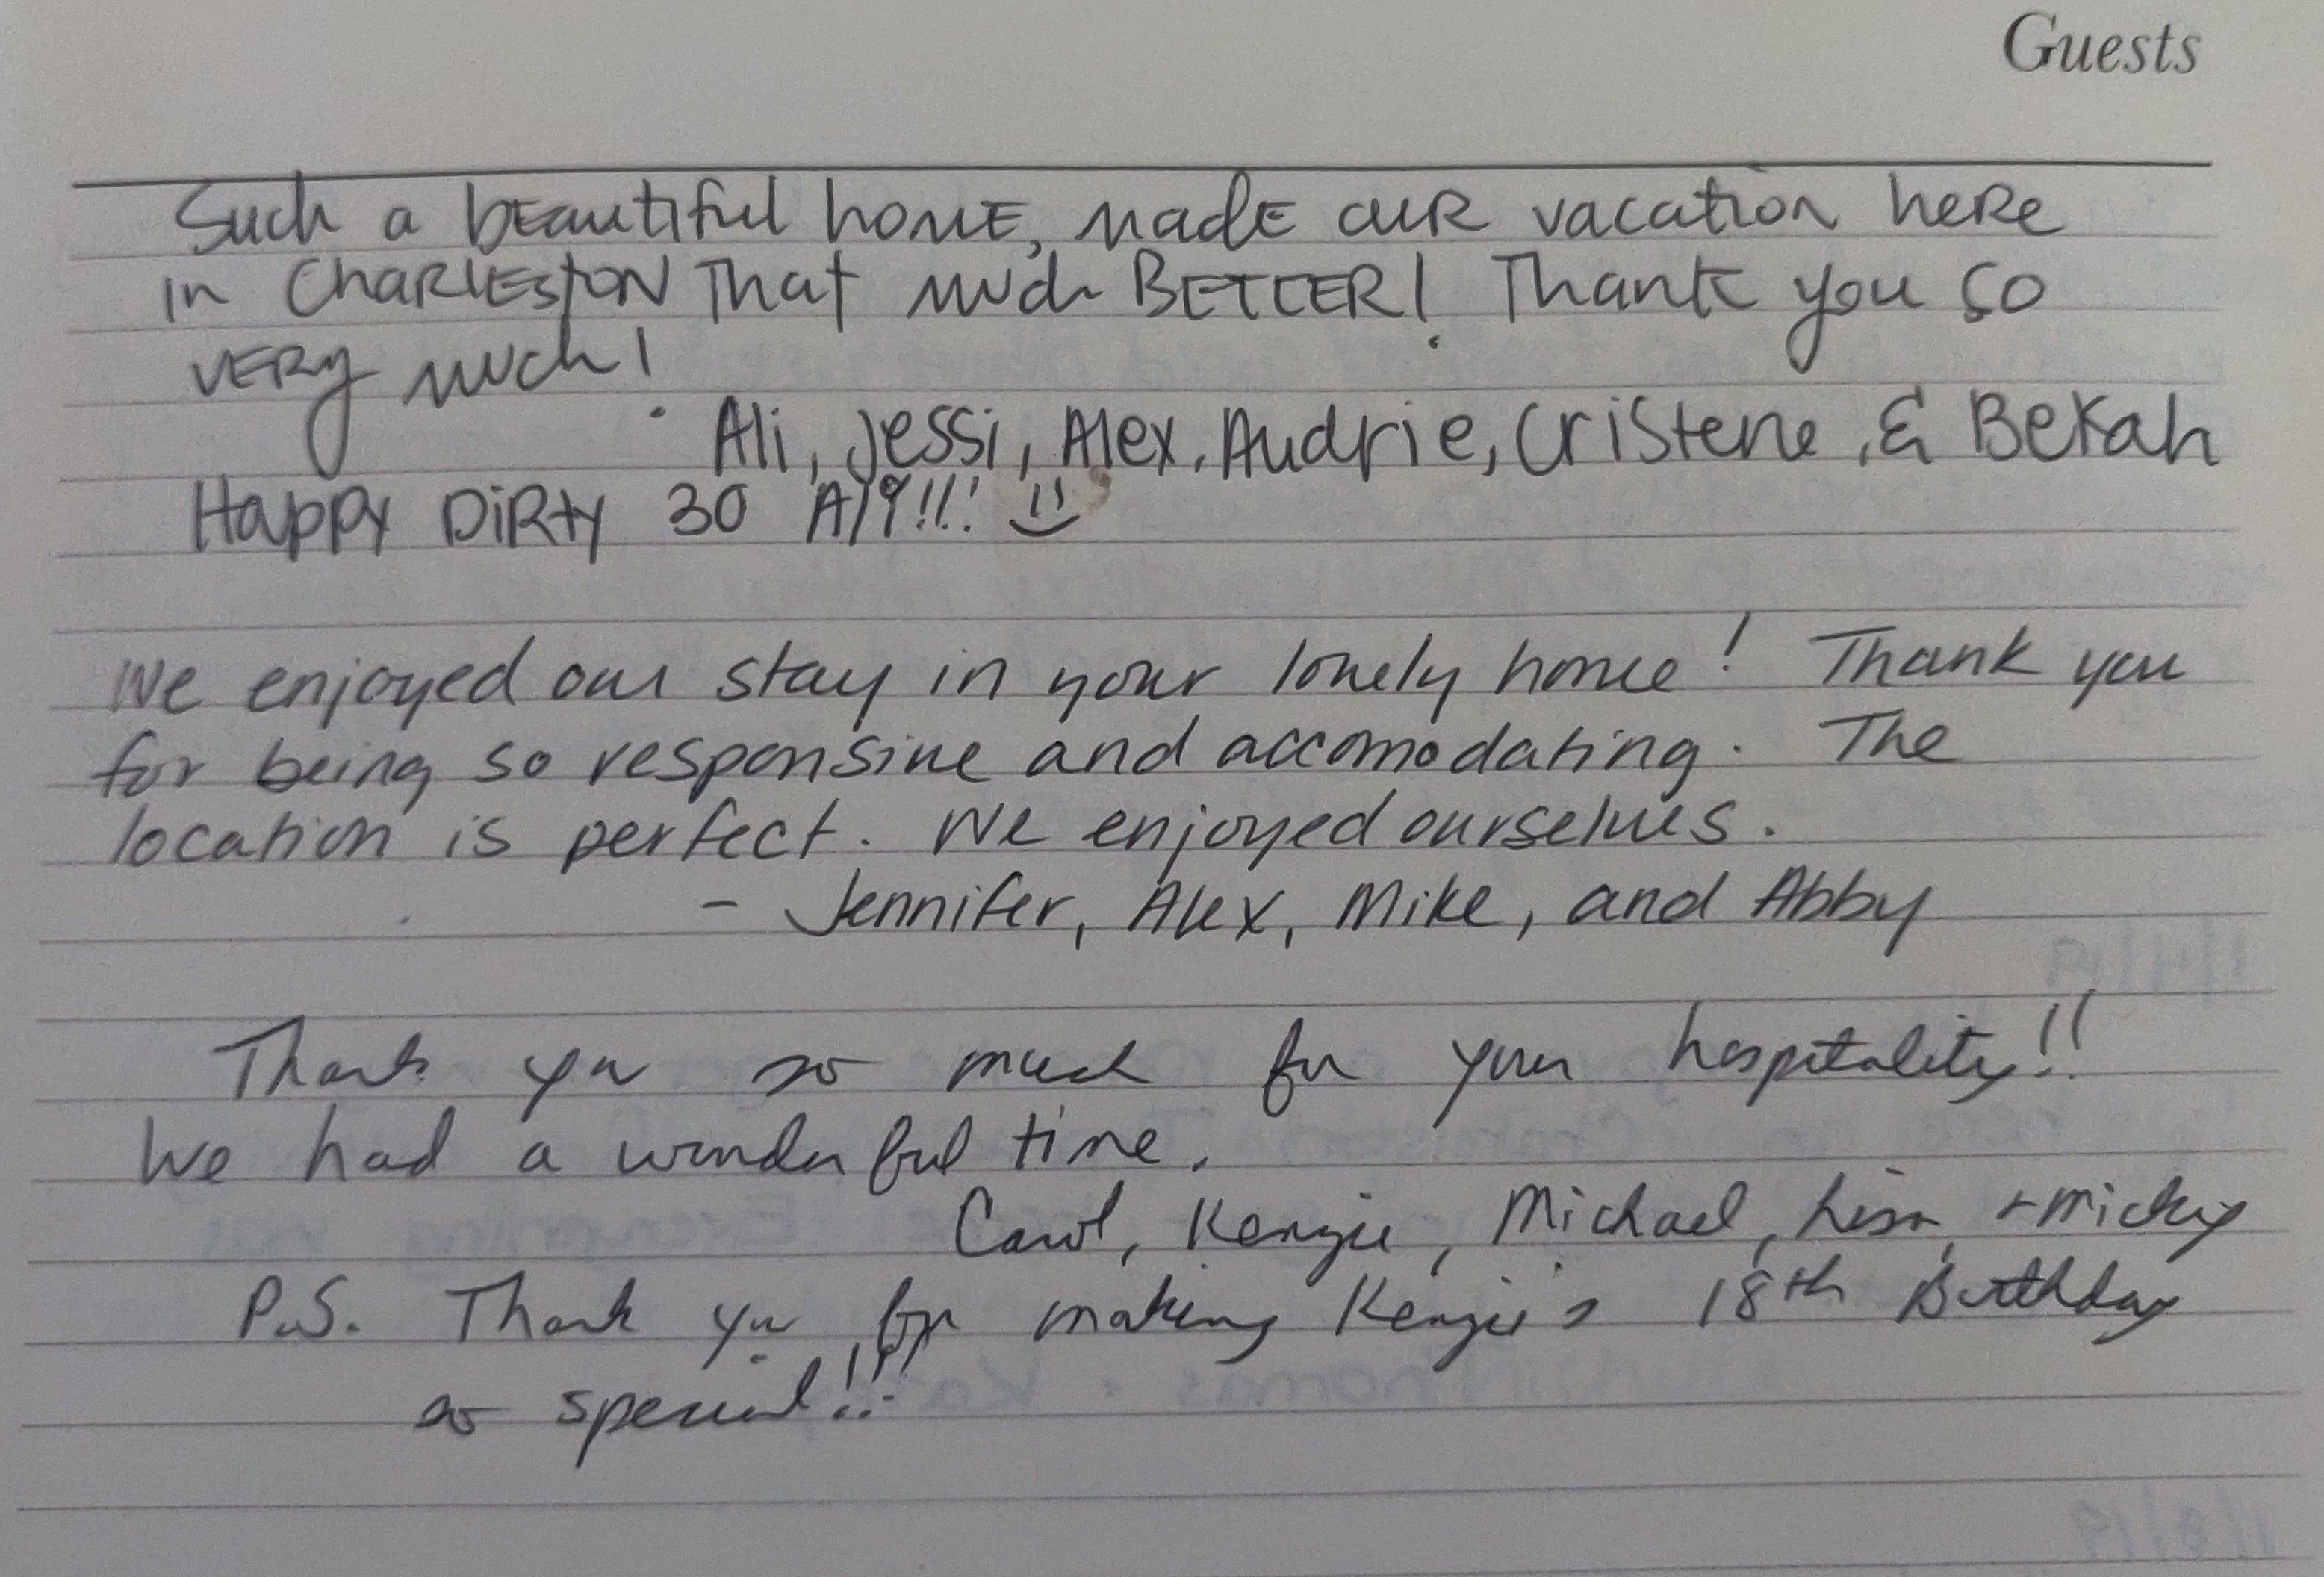 Guests
Such a beautiful home, made our vacation here
in Charleston that much BETTER! Thank you so
very much!
Ali, Jessi, Alex, Audrie, Cristene, & Bekah
Happy Dirty 30 Aly!!! :)
We enjoyed our stay in your lovely home! Thank you
for being so responsive and accomodating. The
location is perfect. We enjoyed ourselves.
- Jennifer, Alex, Mike, and Abby
Thank you so much for your hospitality!!
We had a wonderful time.
Carol, Kenzie, Michael, Lisa, + Micky
P.S. Thank you for making Kenzie's 18th Birthday
so special!!!